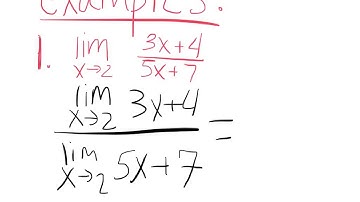 examples:
1. lim x→2 3x+4 / 5x+7
lim x→2 3x+4 =
lim x→2 5x+7